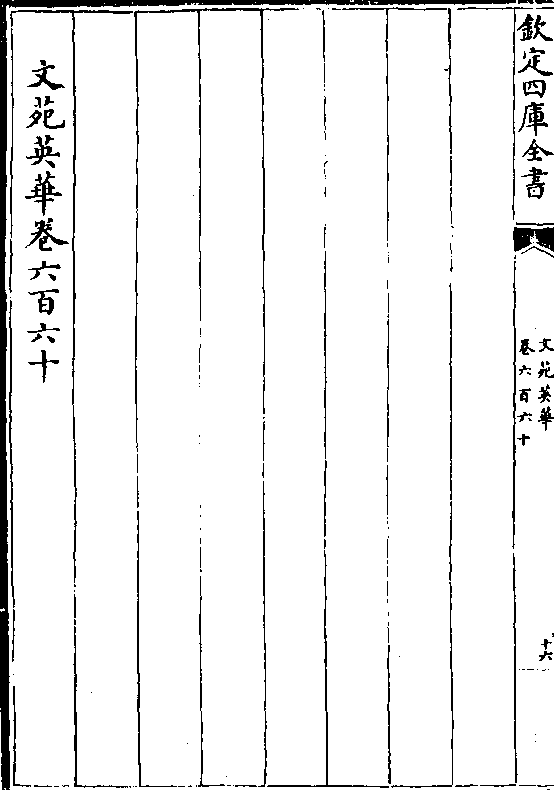 欽定四庫全書
文苑英華
卷六百六十
十六
文苑英華卷六百六十